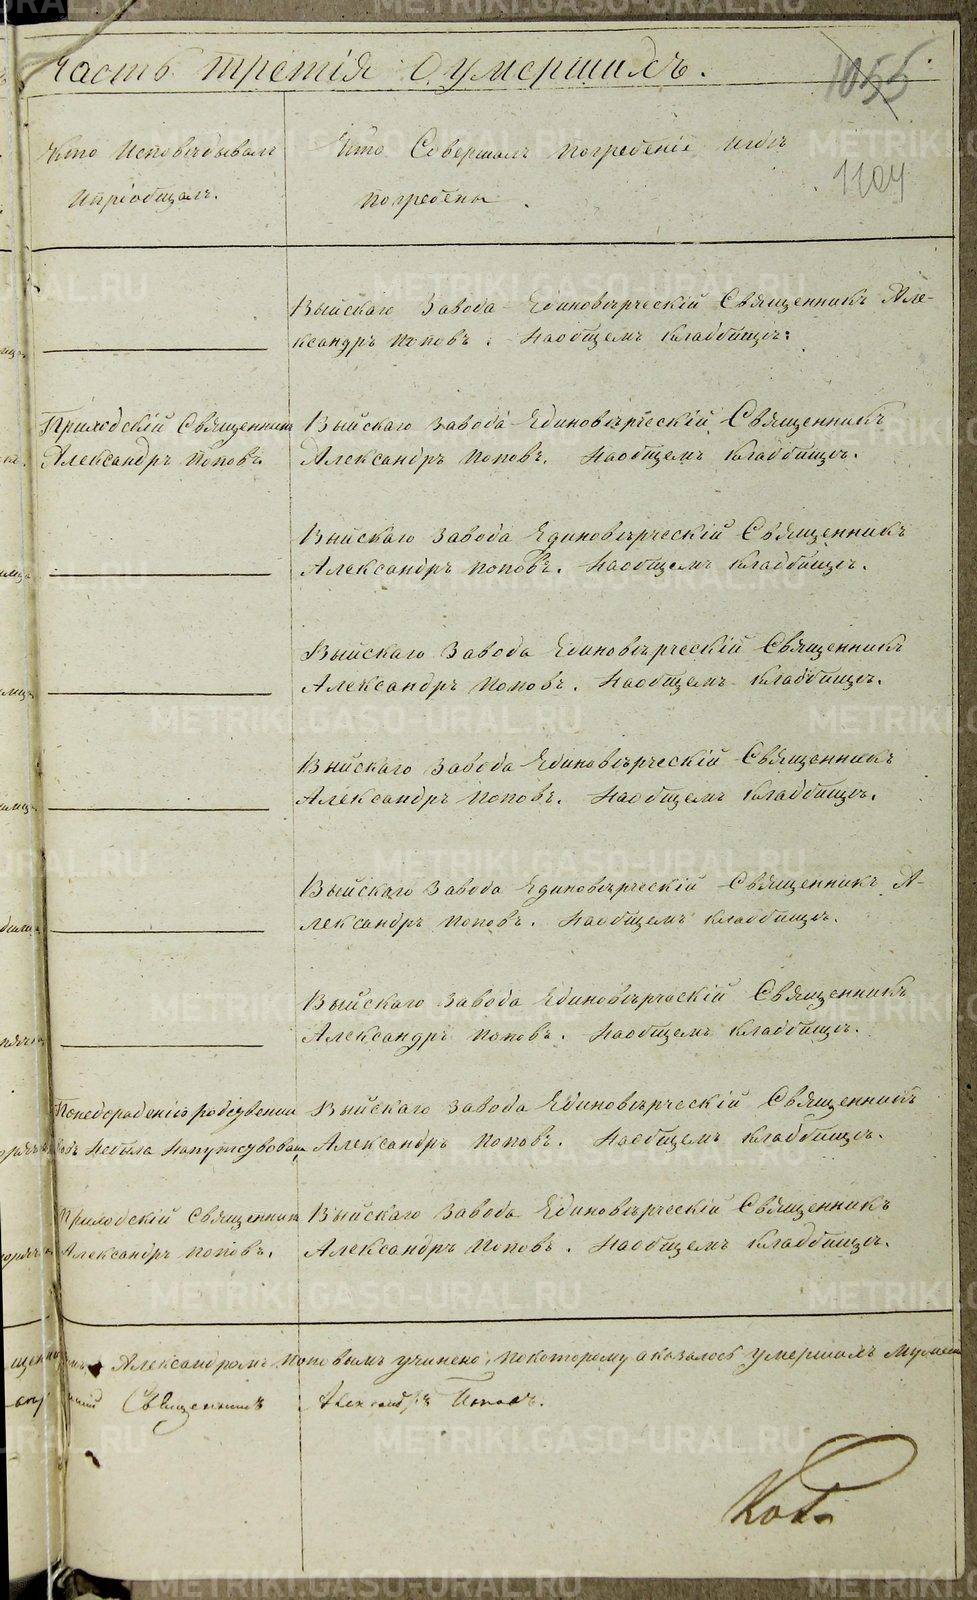 Часть третія о умершихъ.
1055
1104
Кто Исповѣдывалъ
и пріобщалъ.
Кто Совершалъ погребеніе и гдѣ
погребены.
Выйскаго Завода Единовѣрческій Священникъ Але-
ксандръ Поповъ. На общемъ кладбищѣ.
Приходскій Священникъ
Александръ Поповъ
Выйскаго завода Единовѣрческій Священникъ
Александръ Поповъ. На общемъ кладбищѣ.
Выйскаго завода Единовѣрческій Священникъ
Александръ Поповъ. На общемъ кладбищѣ.
Выйскаго завода Единовѣрческій Священникъ
Александръ Поповъ. На общемъ кладбищѣ.
Выйскаго завода Единовѣрческій Священникъ
Александръ Поповъ. На общемъ кладбищѣ.
Выйскаго завода Единовѣрческій Священникъ А-
лександръ Поповъ. На общемъ кладбищѣ.
Выйскаго завода Единовѣрческій Священникъ
Александръ Поповъ. На общемъ кладбищѣ.
По нерадѣнію родственни
ковъ не была напутствована
Выйскаго завода Единовѣрческій Священникъ
Александръ Поповъ. На общемъ кладбищѣ.
Приходскій Священникъ
Александръ Поповъ.
Выйскаго завода Единовѣрческій Священникъ
Александръ Поповъ. На общемъ кладбищѣ.
Александромъ Поповымъ учинено, по которому оказалось умершихъ мужеска
Священникъ Александръ Поповъ.
METRIKI.GASO-URAL.RU